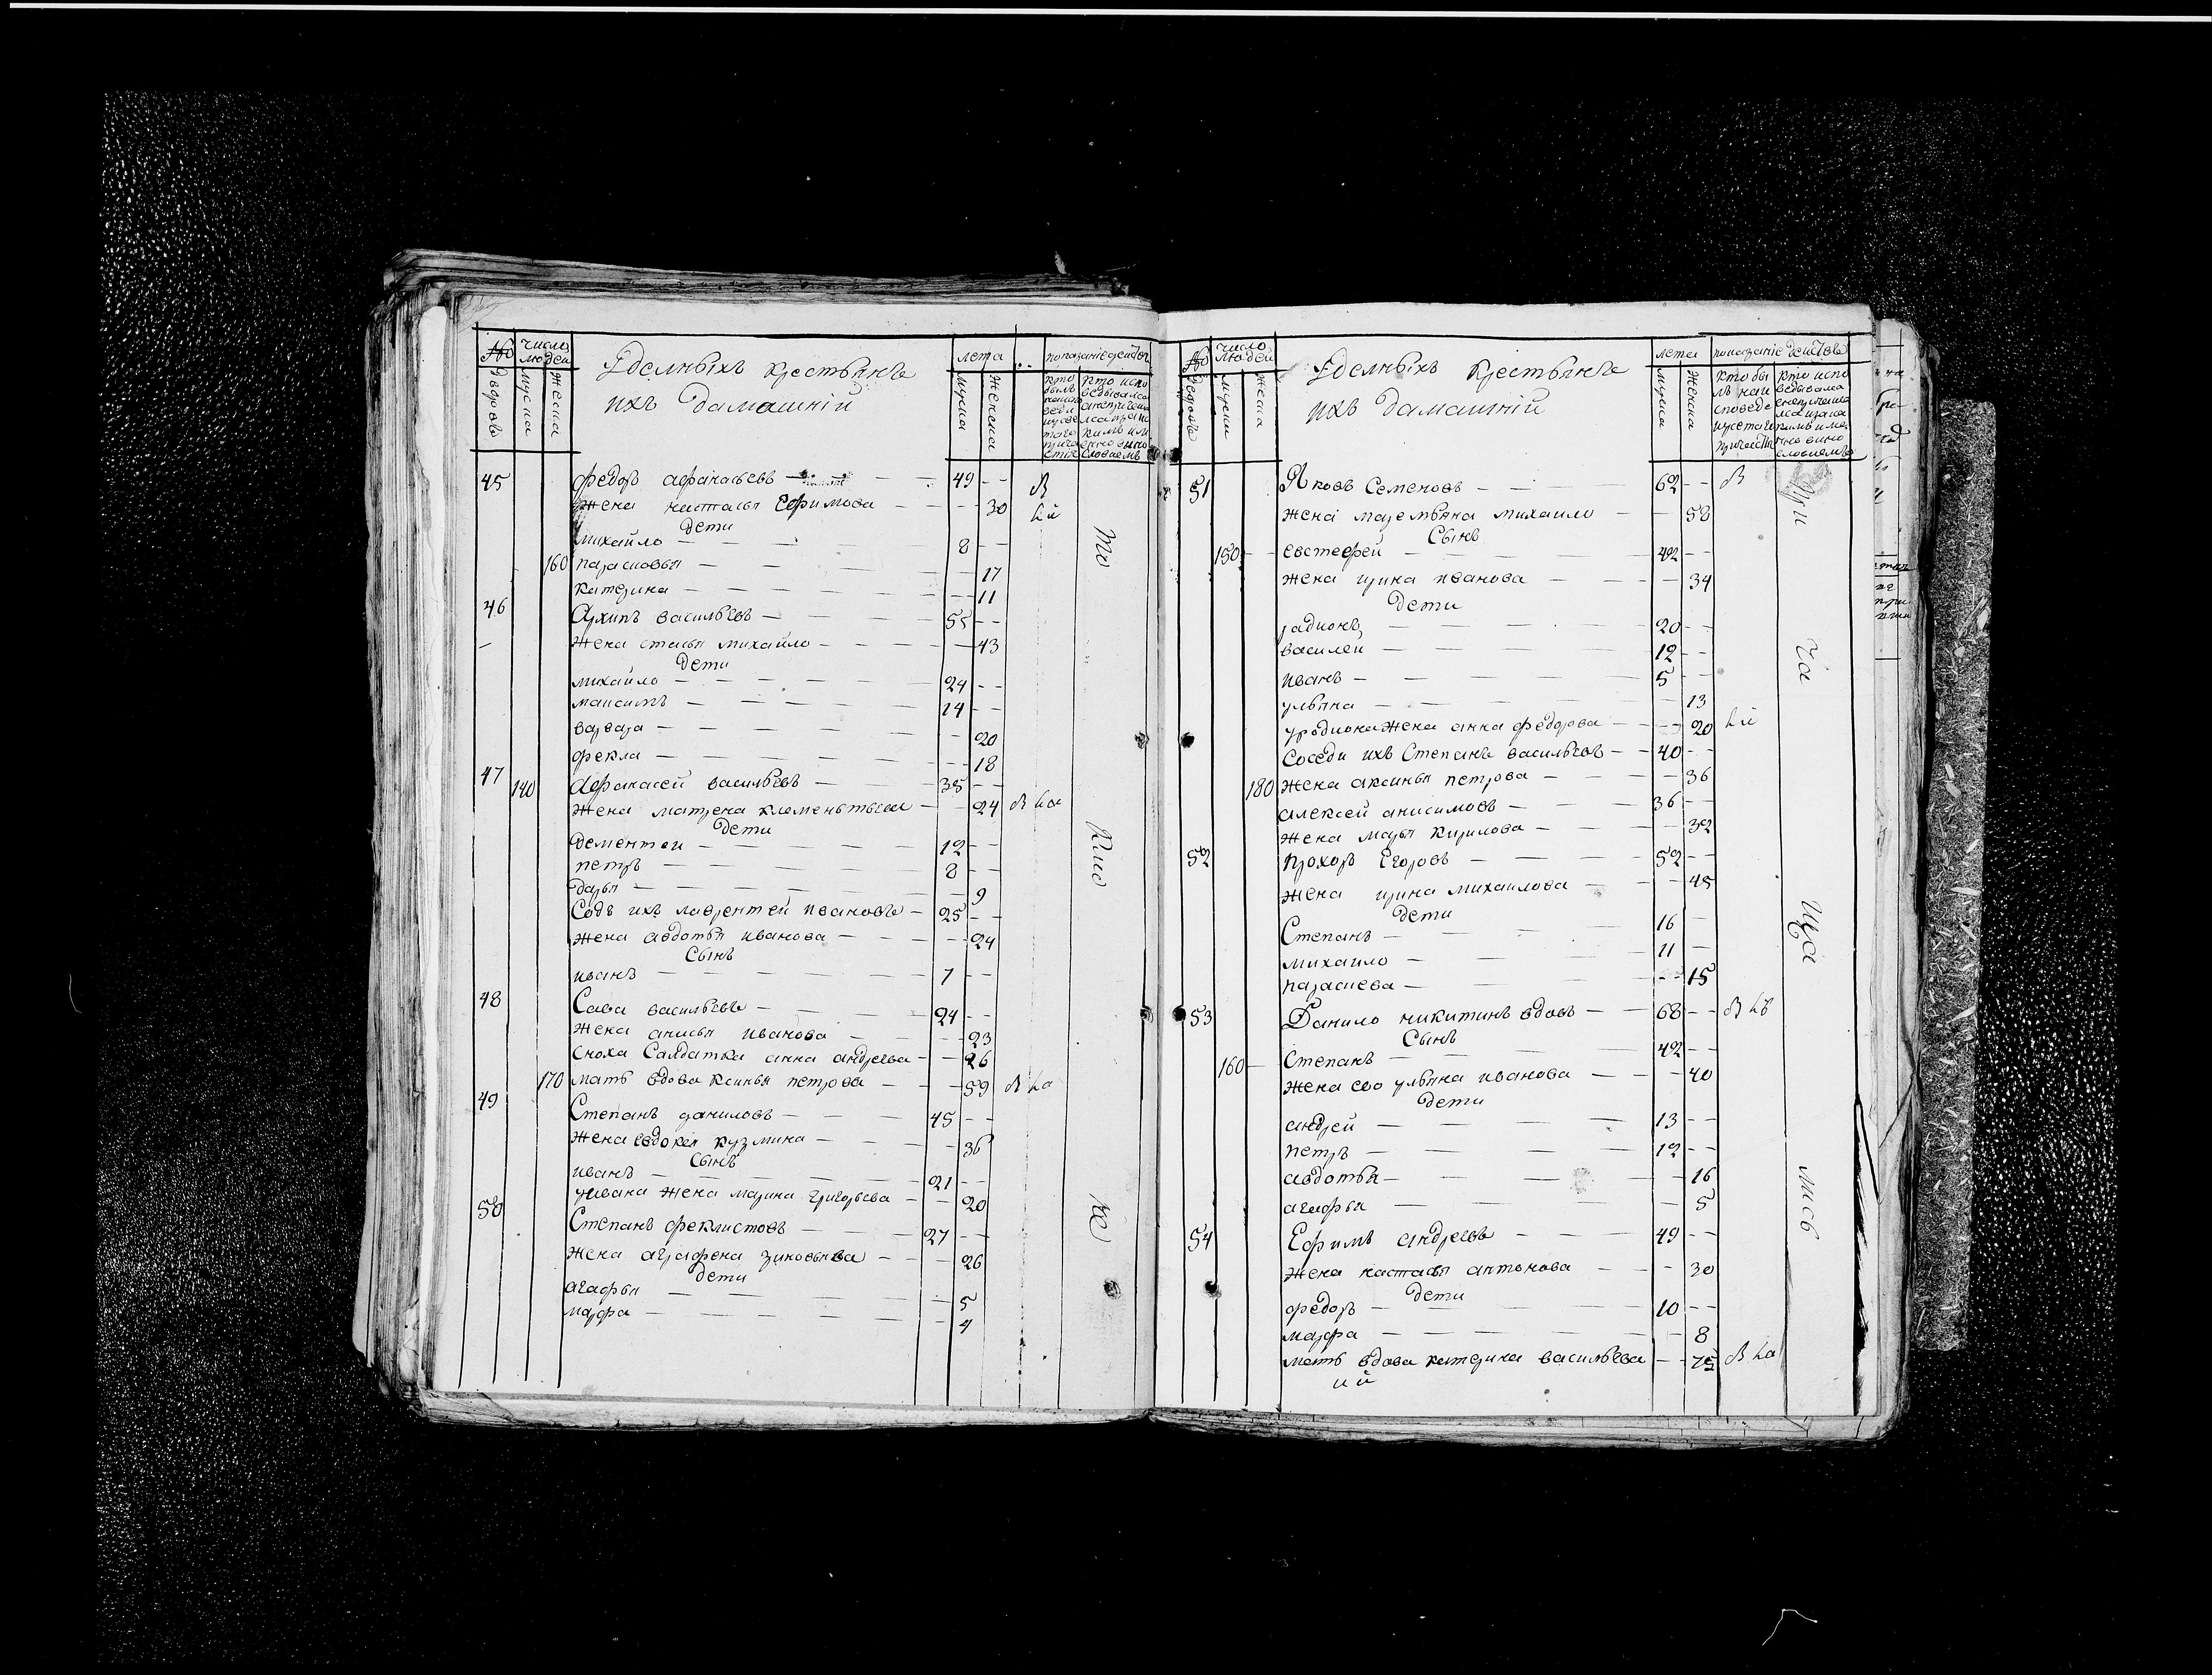 № число людей лета показание действъ
Дворовъ мужска женска Уделныхъ крестьянъ мужска женска
ихъ дамашнiй
45 федоръ афанасьевъ 49
жена настасья Ефимова 30
дети
михайло 8
160 парасковья 17
катерина 11
46 Архипъ васильевъ 55
жена стасья михайло 43
дети
михайло 24
максимъ 14
варвара 20
фекла 18
47 140 Афанасей васильевъ 35
жена матрена клеменьтьева 24
дети
дементеи 12
петръ 8
дарья 9
Содъ ихъ лаврентей ивановъ 25
жена авдотья иванова 24
Сынъ
иванъ 1
48 Сава васильевъ 24
жена анисья иванова 23
сноха Салдатка анна андреева 26
170 мать вдова ксинья петрова 59
49 Степанъ даниловъ 45
жена евдокея кузмина 36
Сынъ
иванъ 21
уивана жена марина григорьева 20
50 Степанъ феклистовъ 27
жена аграфена зиновьива 26
дети
агафья 5
марфа 4
то
кмо
же
№ число людей лета показание действъ
Дворовъ мужска женска Уделныхъ крестьянъ мужска женска
ихъ дамашнiй
51 Яковъ Семеновъ 62
жена маремьяна михаило 58
Сынъ
150 евстефей 42
жена ирина иванова 34
дети
радионъ 20
василей 12
иванъ 5
ульяна 13
уродиона жена анна федорова 20
Соседи ихъ Степанъ васильевъ 40
180 жена аксинья петрова 36
алексей анисимовъ 36
жена марья кирилова 32
52 Прохоръ Егоровъ 52
жена ирина михаилова 45
дети
Степанъ 16
михаило 11
парасиева 15
53 Данило никитинъ вдовъ 68
Сынъ
160 Степанъ 42
жена ево ульяна иванова 40
дети
андрей 13
петръ 12
авдотья 16
агафья 5
54 Ефимъ андреевъ 49
жена настасья антонова 30
дети
федоръ 10
марфа 8
мать вдова катерина васильева 75
При
ча
ща
лись